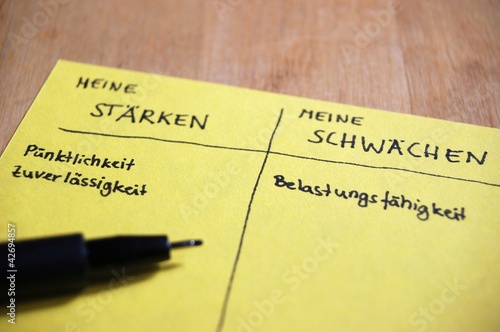 MEINE
STÄRKEN
Pünktlichkeit
Zuverlässigkeit
MEINE
SCHWÄCHEN
Belastungsfähigkeit
42694857
Adobe Stock